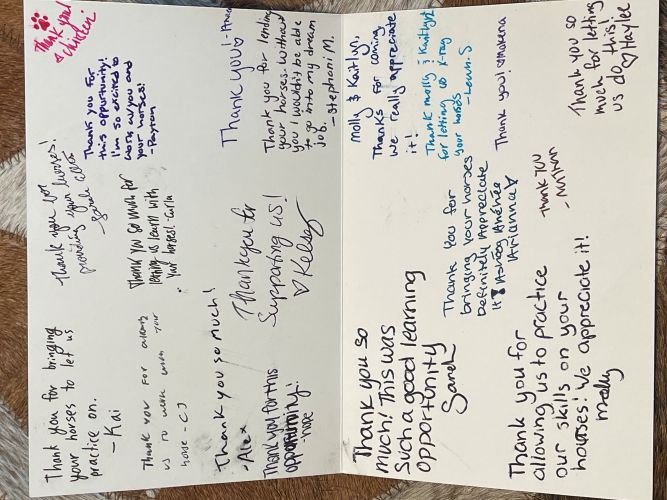 Thank you!
Kirsten!
Thank you for
this oppurtunity!
I'm so excited to
work w/you and
your horses!
-Payton
Thank you! -Anna
Thank you for lending
your horses. Without
you I wouldn't be able
to go into my dream
job.
-Stephani M.
Thank you for
providing your horses!
Thank you so much for
letting us learn with
your horses!
Thank you for
Supporting us!
♡ Kelsey
Thank you for bringing
your horses to let us
practice on.
-Kai
Thank you for allowing
us to work with your
horse -CJ
Thank you so much!
-Alex
Thank you for this
opportunity!
-Hope
Molly & Kaitlyn,
Thanks for coming
We really appreciate
it!
Thank molly & Kaitlyn
for letting us x-ray
your horses
Thank you! ♡Makena
Thank you so
much for letting
us do this!
♡Haylee
Thank you for
bringing your horses
Definitely Appreciate
It
Arianna♡
Thank you
-Nathan
Thank you so
much! This was
Such a good learning
opportunity
Sarah
Thank you for
allowing us to practice
our skills on your
horses! We appreciate it!
molly